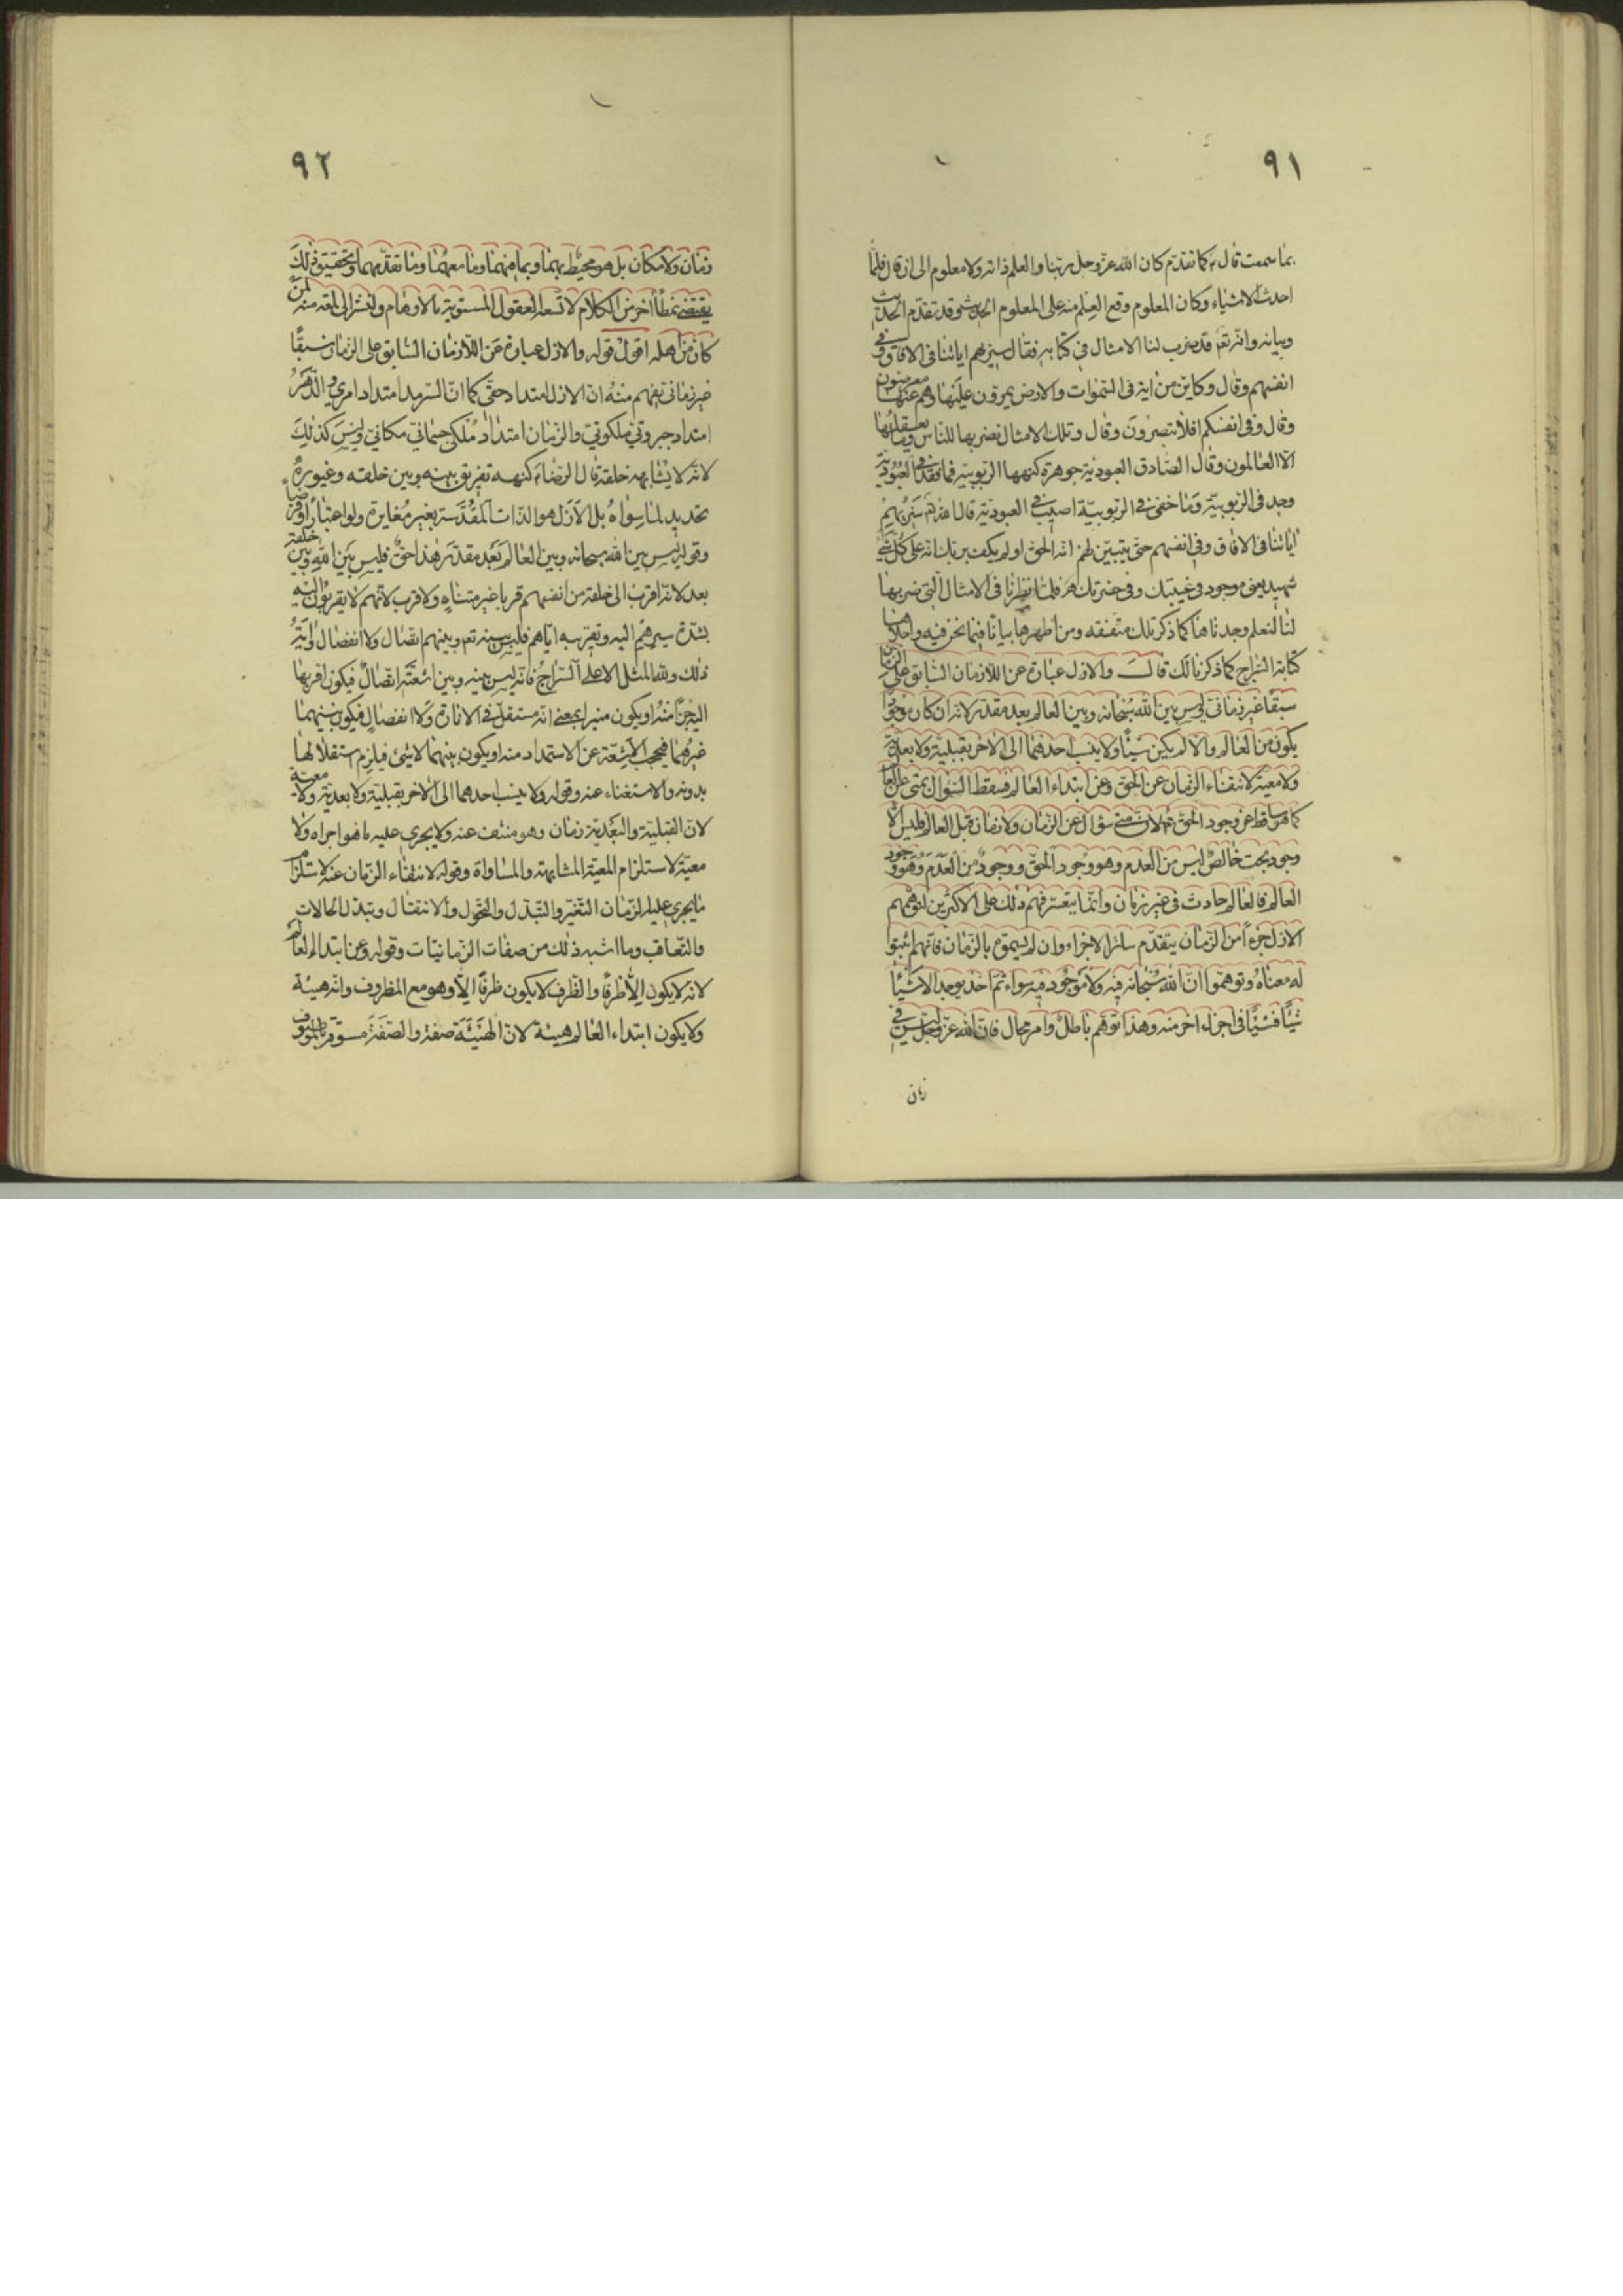 ٩١
بما سمعت قال ع كما تقدم كان الله عز وجل ربنا والعلم ذاته ولا معلوم الى ان قال فلما
احدث الاشياء وكان المعلوم وقع العلم منه على المعلوم الحديث وقد تقدم الحديث
وبيانه وانه تع قد ضرب لنا الامثال في كتابه فقال سنريهم اياتنا في الافاق وفي
انفسهم وقال وكاين من اية في السموات والارض يمرون عليها وهم عنها معرضون
وقال وفي انفسكم افلا تبصرون وقال وتلك الامثال نضربها للناس وما يعقلها
الا العالمون وقال الصادق العبودية جوهرة كنهها الربوبية فما فقد في العبودية
وجد في الربوبية وما خفي في الربوبية اصيب في العبودية قال الله تع سنريهم
اياتنا في الافاق وفي انفسهم حتى يتبين لهم انه الحق اولم يكف بربك انه على كل شيء
شهيد يعني موجود في غيبتك وفي حضرتك فلما نظرنا في الامثال التي ضربها
لنا لنعلم وجدناها كما ذكر تلك متفقه ومن اظهرها بيانا فيما نحن فيه واجلاها
كتابة السراج كما ذكرنا لك قال والازل عبارة عن اللازمان السابق على الزمان
سبقا غير زماني وليس بين الله سبحانه وبين العالم بعد مقدر لانه ان كان موجودا
يكون من العالم والا لم يكن شيئا ولا ينسب احدهما الى الاخر بقبلية ولا بعدية
ولا معية لانتفاء الزمان عن الحق وعن ابتداء العالم فسقط السؤال بمتى عن العالم
كما هو ساقط عن وجود الحق لان متى سؤال عن الزمان ولا زمان قبل العالم فليس الا
وجود بحت خالص ليس من العدم وهو وجود الحق ووجود من العدم وهو وجود
العالم فالعالم حادث في غير زمان وانما يتعسر فهم ذلك على الاكثرين لتوهمهم
الازل جزءا من الزمان يتقدم سائر الاجزاء وان لم يسموه بالزمان فانهم اثبتوا
له معناه وتوهموا ان الله سبحانه فيه ولا موجود فيه سواه ثم اخذ يوجد الاشياء
شيئا فشيئا في اجزاء اخر منه وهذا توهم باطل وامر محال فان الله عز وجل ليس في
زمان
٩٢
زمان ولا مكان بل هو محيط بهما وبما فيهما وما معهما وما تقدمهما وتحقيق ذلك
يقتضي نمطا اخر من الكلام لا تسعه العقول المشوبة بالاوهام ولنشر الى لمعة منه لمن
كان من اهله اقول قوله والازل عبارة عن اللازمان السابق على الزمان سبقا
غير زماني يفهم منه ان الازل امتداد حتى كما ان السرمد امتداد امري والدهر
امتداد جبروتي ملكوتي والزمان امتداد ملكي جسماني مكاني وليس كذلك
لانه لا يشابهه خلقه قال الرضا ع كنهه تفريق بينه وبين خلقه وغيوره
تحديد لما سواه بل الازل هو الذات المقدسة بغير مغايرة ولو اعتبارا او فرضا
وقوله ليس بين الله سبحانه وبين العالم بعد مقدر هذا حق فليس بين الله وبين خلقه
بعد لانه اقرب الى خلقه من انفسهم قربا غير متناه ولا قرب لانهم لا يقربون اليه
بشدة سيرهم اليه وتقربه اياهم فليس بينه تع وبينهم اتصال ولا انفصال واية
ذلك ولله المثل الاعلى السراج فانه ليس بينه وبين اشعته اتصال فيكون اقربها
اليه جزءا منه او يكون منيرا بمعنى انه مستقل في الانارة ولا انفصال فيكون بينهما
غيرهما فيحجب الاشعة عن الاستمداد منه او يكون بينهما لا شيء فيلزم استقلالها
بدونه والاستغناء عنه وقوله ولا ينسب احدهما الى الاخر بقبلية ولا بعدية ولا معية
لان القبلية والبعدية زمان وهو منتف عنه ولا يجري عليه ما هو اجراه ولا
معية لاستلزام المعية المشابهة والمساواة وقوله لانتفاء الزمان عنه لاستلزام
ما يجري عليه الزمان التغير والتبدل والتحول والانتقال وتبدل الحالات
والتعاقب وما اشبه ذلك من صفات الزمانيات وقوله وعن ابتداء العالم
لانه لا يكون الا ظرفا والظرف لا يكون ظرفا الا وهو مع المظروف وانه هيئة
ولا يكون ابتداء العالم هيئة لان الهيئة صفة والصفة مسبوقة بالموصوف